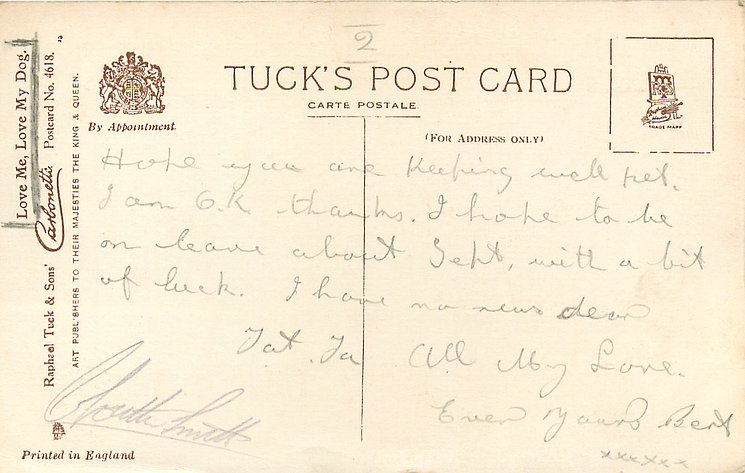 2
TUCK'S POST CARD
CARTE POSTALE.
By Appointment.
(FOR ADDRESS ONLY)
TRADE MARK
Love Me, Love My Dog.
Raphael Tuck & Sons' Carbonette Postcard No. 4618.
ART PUBLISHERS TO THEIR MAJESTIES THE KING & QUEEN.
Hope you are keeping well pet.
I am O.K thanks. I hope to be
on leave about Sept, with a bit
of luck. I have no news dear
Tat. Ta All My Love.
Ever Yours Bert
xxxxxx
Smith
Printed in England